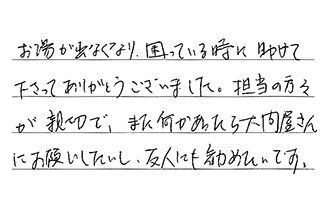 お湯が出なくなり、困っている時に助けて
下さってありがとうございました。担当の方も
が親切で、また何かあったら大問屋さん
にお願いしたいし、友人にも勧めたいです。